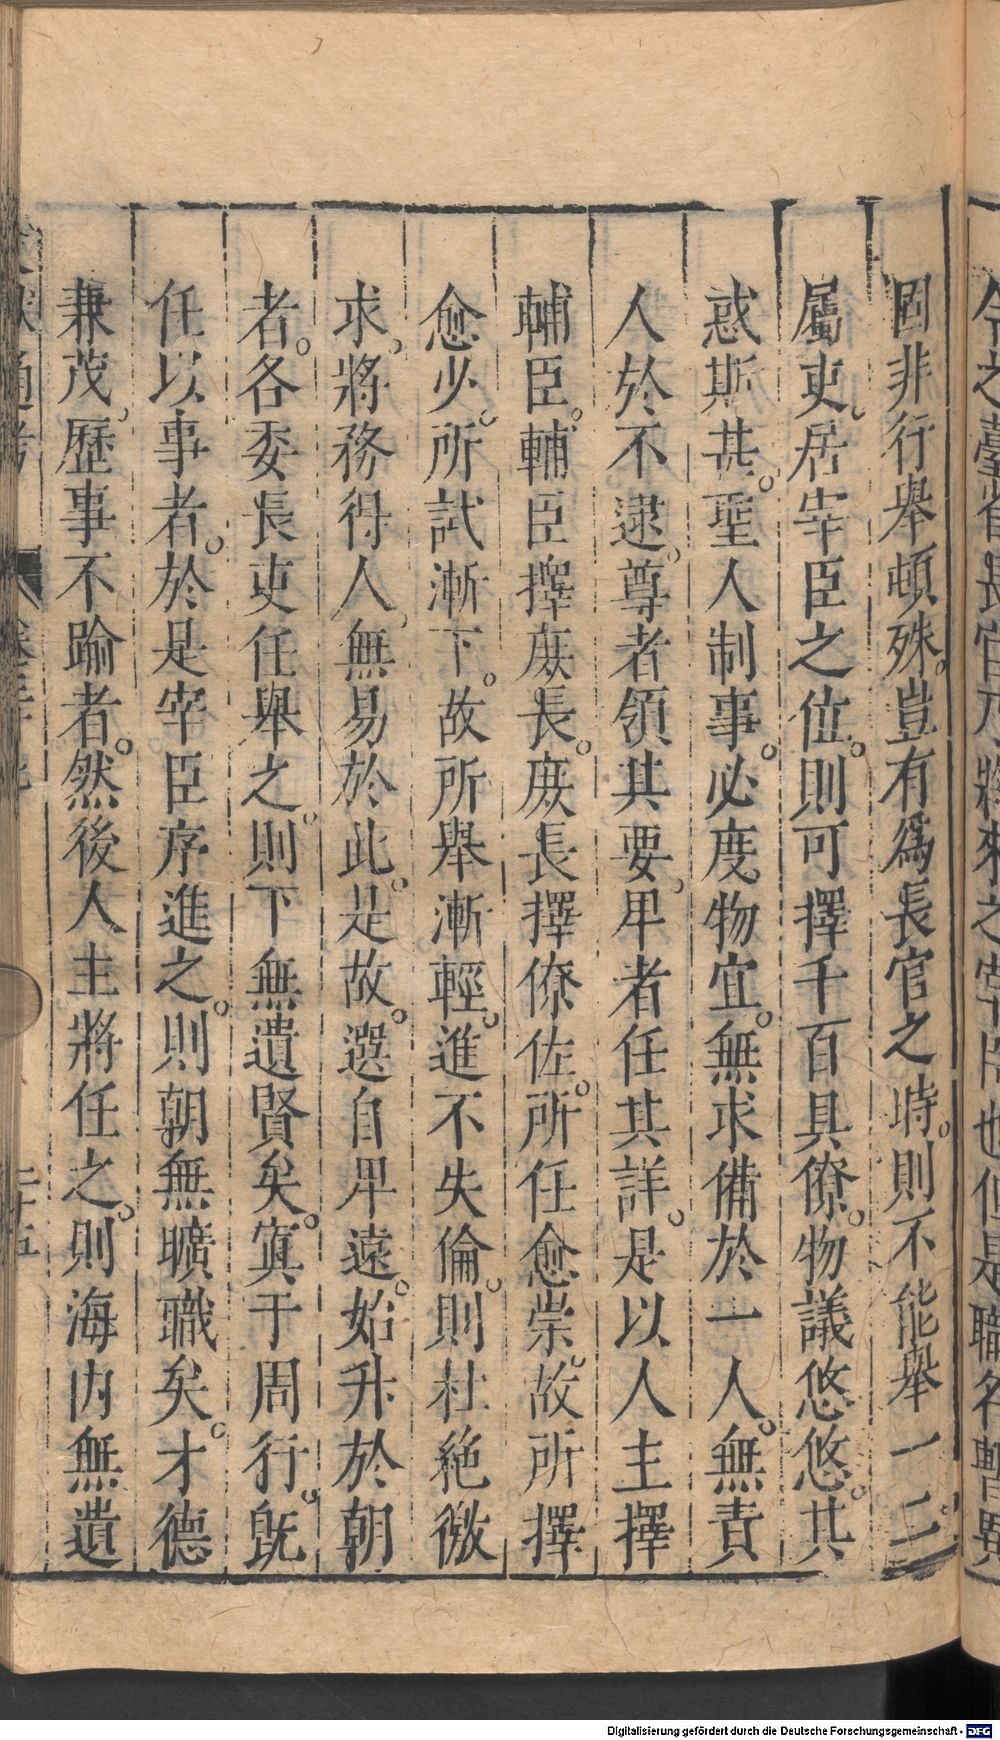 今之臺省長官乃將來之宰臣也但是職名暫異
固非行舉頓殊。豈有爲長官之時。則不能舉一二
屬吏。居宰臣之位。則可擇千百具僚。物議悠悠。其
惑斯甚。聖人制事。必度物宜。無求備於一人。無責
人於不逮。尊者領其要。卑者任其詳。是以人主擇
輔臣。輔臣擇庶長。庶長擇僚佐。所任愈崇。故所擇
愈少。所試漸下。故所舉漸輕。進不失倫。則杜絶徼
求。將務得人。無易於此。是故。選自卑遠。始升於朝
者。各委長吏任舉之。則下無遺賢矣。寘于周行。既
任以事者。於是宰臣序進之。則朝無曠職矣。才德
兼茂。歷事不踰者。然後人主將任之。則海内無遺
通考
二十五
Digitalisierung gefördert durch die Deutsche Forschungsgemeinschaft - DFG